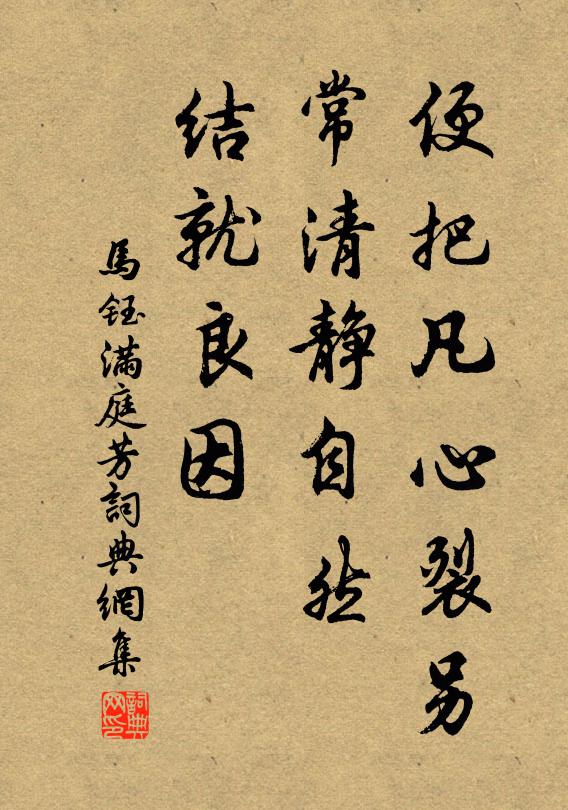 便把凡心裂另
常清静自然
结就良因
馬鈺滿庭芳詞典網集
詞典网印